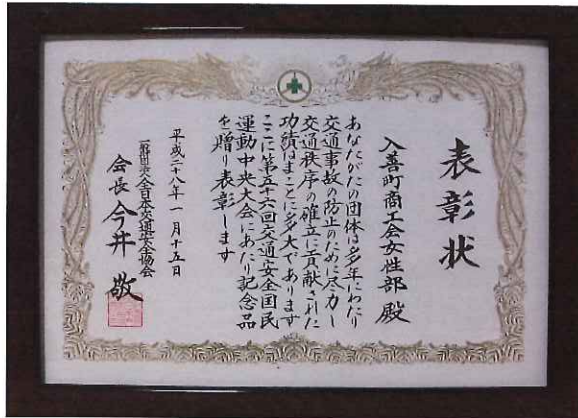 表彰状
入善町商工会女性部 殿
あなたがたの団体は多年にわたり
交通事故の防止のために尽力し
交通秩序の確立に貢献された
功績はまことに多大であります
ここに第五十六回交通安全国民
運動中央大会にあたり記念品
を贈り表彰します
平成二十八年一月十五日
一般財団法人全日本交通安全協会
会長 今井 敬